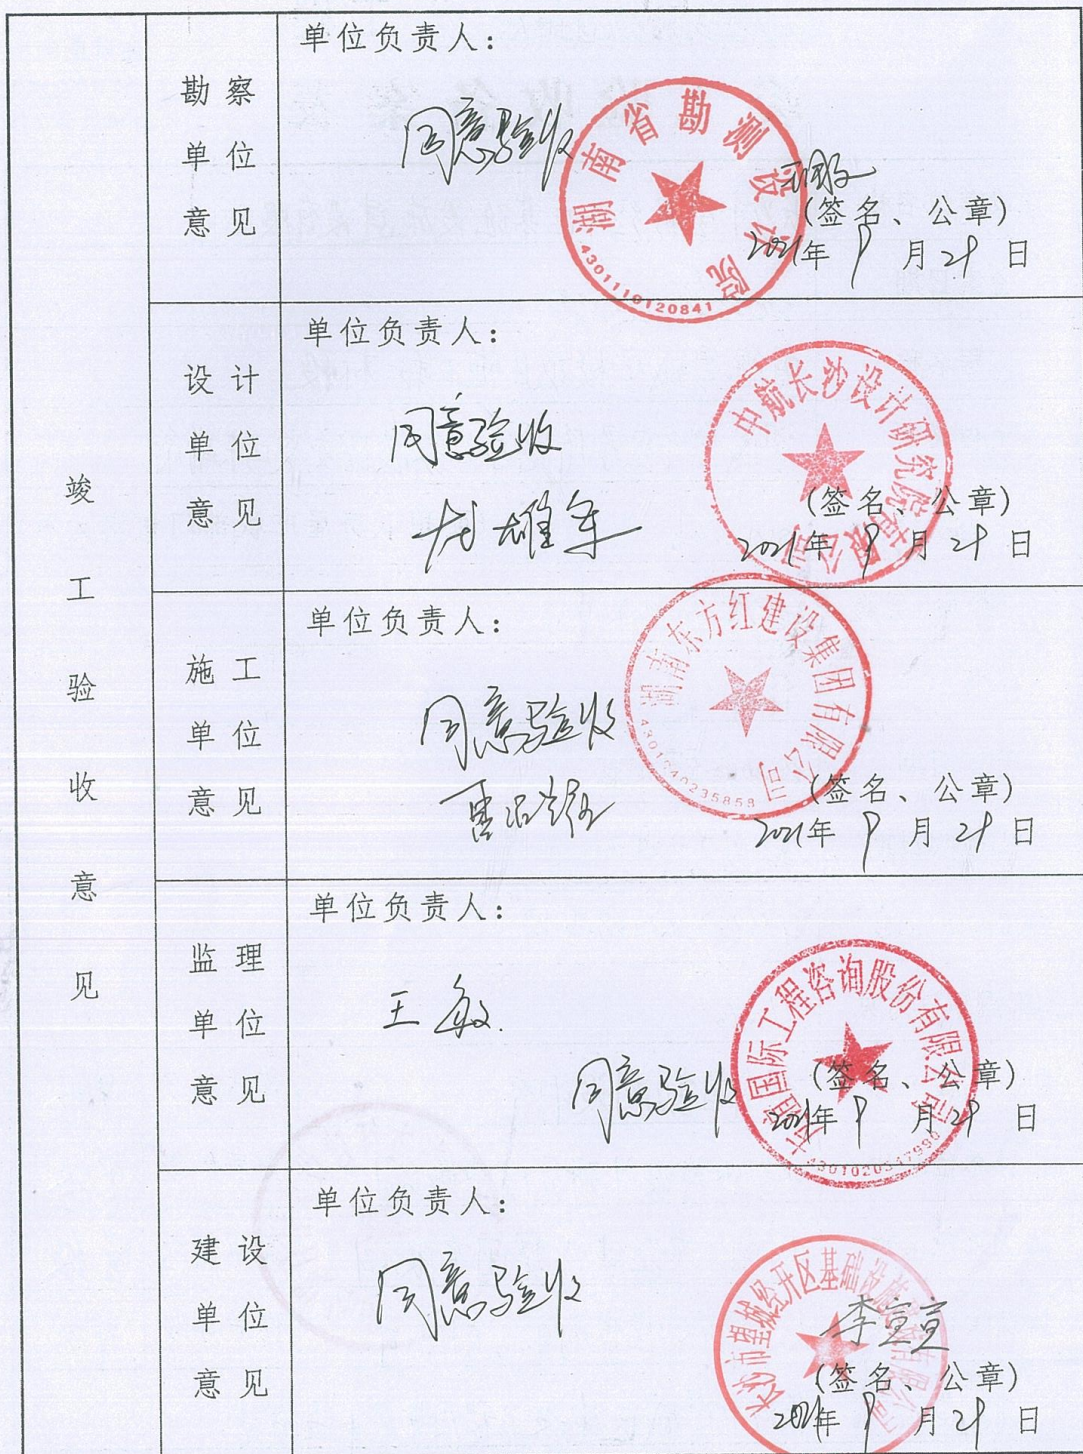 竣工验收意见
勘察单位意见
单位负责人：
同意验收
湖南省勘测设计院
4301110120841
(签名、公章)
2021年9月29日
设计单位意见
单位负责人：
同意验收
龙雄军
中航长沙设计研究院有限公司
(签名、公章)
2021年9月29日
施工单位意见
单位负责人：
同意验收
湖南东方红建设集团有限公司
(签名、公章)
2021年9月29日
监理单位意见
单位负责人：
王敏
同意验收
国际工程咨询股份有限公司
(签名、公章)
2021年9月29日
建设单位意见
单位负责人：
同意验收
(签名、公章)
2021年9月29日